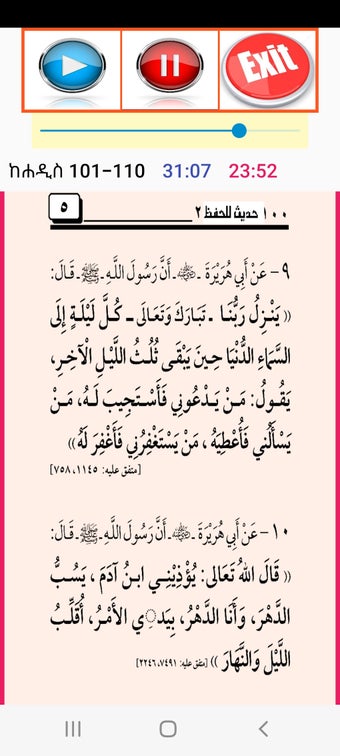 Exit
ከሐዲስ 101-110 31:07 23:52
١٠٠ حديث للحفظ ٢ ٥
٩ - عَنْ أَبِي هُرَيْرَةَ ـ ﷺ ـ أَنَّ رَسُولَ اللَّهِ ـ ﷺ ـ قَالَ:
(( يَنْزِلُ رَبُّنَا ـ تَبَارَكَ وَتَعَالَى ـ كُلَّ لَيْلَةٍ إِلَى
السَّمَاءِ الدُّنْيَا حِينَ يَبْقَى ثُلُثُ اللَّيْلِ الْآخِرِ،
يَقُولُ: مَنْ يَدْعُونِي فَأَسْتَجِيبَ لَهُ، مَنْ
يَسْأَلُنِي فَأُعْطِيَهُ، مَنْ يَسْتَغْفِرُنِي فَأَغْفِرَ لَهُ ))
[متفق عليه: ١١٤٥، ٧٥٨]
١٠ - عَنْ أَبِي هُرَيْرَةَ ـ ـ أَنَّ رَسُولَ اللَّهِ ـ ﷺ ـ قَالَ:
(( قَالَ اللهُ تَعَالَى: يُؤْذِينِي ابنُ آدَمَ، يَسُبُّ
الدَّهْرَ، وَأَنَا الدَّهْرُ، بِيَدِي الأَمْرُ، أُقَلِّبُ
اللَّيْلَ وَالنَّهَارَ )) [متفق عليه: ٧٤٩١، ٢٢٤٦]